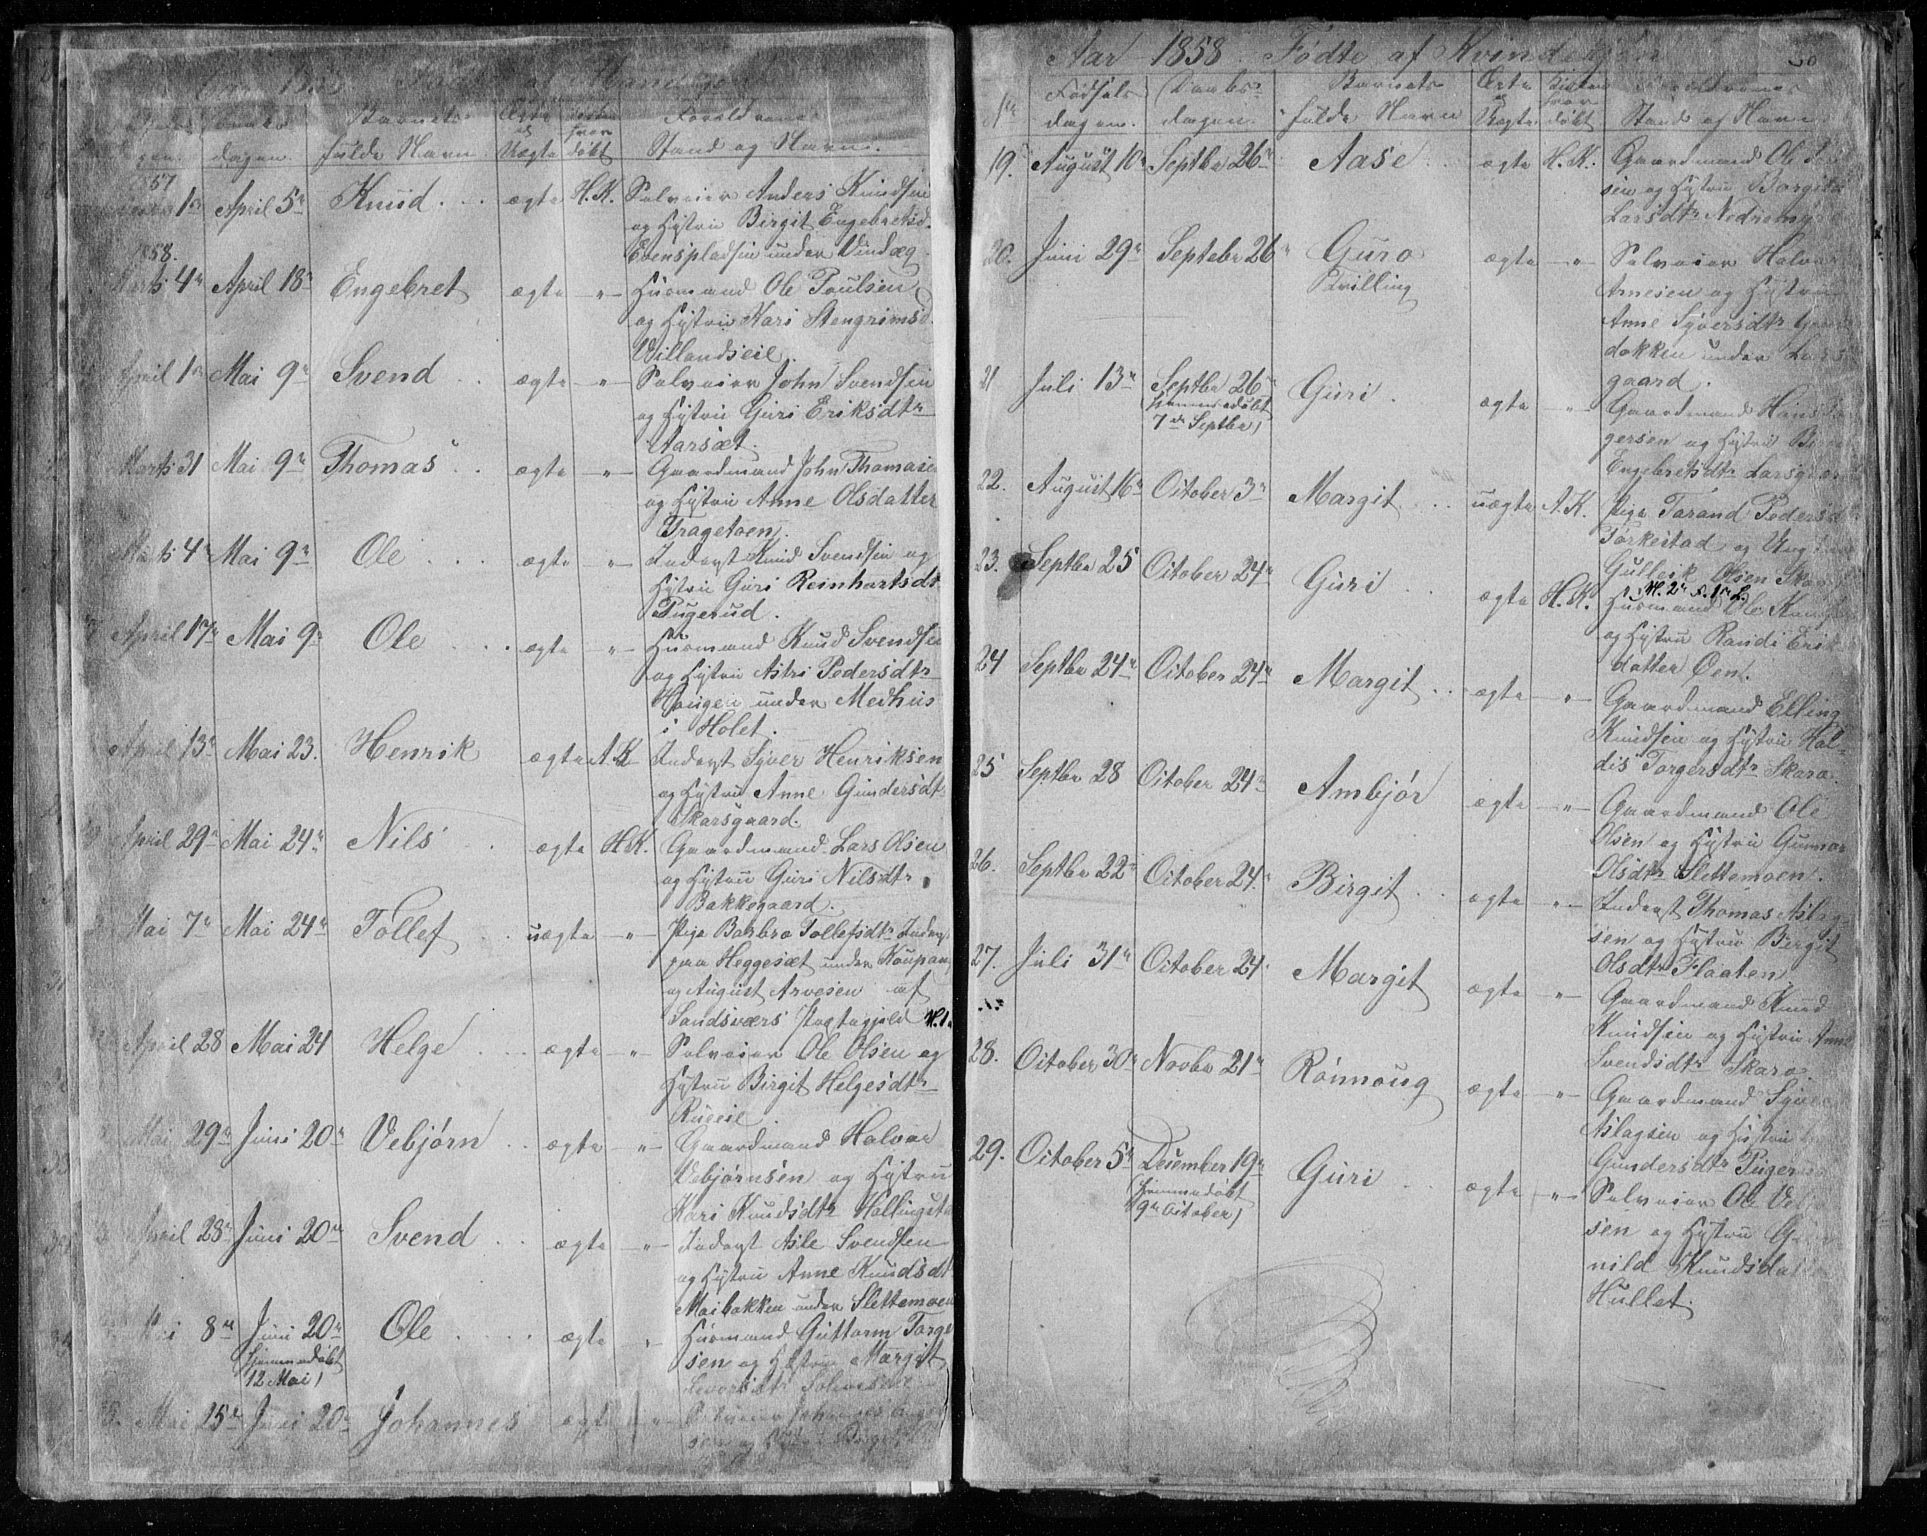 Fødsels
dagen.
Daabs
dagen.
Barnets
fulde Navn
Ægte
og
Uægte
Kirken
hvor
døbt
Forældrenes
Stand og Navn.
1857
1n April 5n Knud. ægte H.K. Selveier Anders Knudsen
og Hustru Birgit Engebretsd.
Evenspladsen under Vindæg
1858.
Marts 4n April 18n Engebret ægte -"- Husmand Ole Poulsen
og Hustru Kari Stengrimsd.
Villandseie.
April 1n Mai 9n Svend ægte -"- Selveier John Svendsen
og Hustru Guri Eriksdtr
Aarsæt.
Marts 31 Mai 9n Thomas ægte -"- Gaardmand John Thomasen
og Hustru Anne Olsdatter
Trageton.
Marts 4n Mai 9n Ole ægte -"- Inderst Knud Svendsen og
Hustru Guri Reinhartsdt
Pugerud.
April 17n Mai 9n Ole ægte -"- Husmand Knud Svendsen
og Hustru Astri Pedersdtr
Haugen under Medhus
i Holet.
April 13n Mai 23. Henrik ægte A.K. Inderst Syver Henriksen
og Hustru Anne Gundersdt
Skarsgaard.
April 29n Mai 24n Nils ægte H.K. Gaardmand Lars Olsen
og Hustru Guri Nilsdtr
Bakkegaard.
Mai 7n Mai 24n Tollef uægte -"- Pige Barbro Tollefsdtr Inderst
paa Heggesæt under Koupang
og August Arvesen af
Sandsværs Præstegjeld
April 28 Mai 24 Helge ægte -"- Selveier Ole Olsen og
Hustru Birgit Helgesdtr
Rueeie.
Mai 29n Juni 20n Vebjørn ægte -"- Gaardmand Halvor
Vebjørnsen og Hustru
Kari Knudsdtr Hallingsta
April 28n Juni 20n Svend ægte -"- Inderst Asle Svendsen
og Hustru Anne Knudsdt
Maibakken under Slettemoen
Mai 8n Juni 20n Ole ægte " Husmand Guttorm Torge
(hjemmedøbt
12 Mai)
sen og Hustru Margit
Mai 15n Juni 20n Johannes ægte -"- Selveier Johannes
sen og Hustru Birgit
Aar 1858. Fødte af Kvindekjøn
No
Fødsels
dagen.
Daabs-
dagen.
Barnets
fulde Navn
Ægte
og
Uægte
Kirken
hvor
døbt
Forældrenes
Stand og Navn.
19. August 10n Septbr 26n Aase ægte H.K. Gaardmand Ole
sen og Hustru Bargit
Larsdtr Nedremyr
20. Juni 29n Septebr 26n Guro ægte -"- Selveier Halvor
Tvilling
Arnesen og Hustru
Anne Syversdtr
dokken under Lars
gaard.
21 Juli 13n Septbr 26n Guri. ægte -"- Gaardmand Hans Tor
(hjemmedøbt
7de Septbr)
gersen og Hustru
Engebretsdtr Larsgaard
22. August 16n October 3n Margit uægte A.K. Pige Tarand Pedersd
Torkestad og Ung
Gullerik Olsen Skar
M. 2n F. 1n L.
23. Septbr 25 October 24n Guri ægte H.K. Husmand Ole Knuds
og Hustru Randi Erik
datter Øen.
24 Septbr 24n October 24n Margit ægte -"- Gaardmand Elling
Knudsen og Hustru Hal-
dis Torgersdtr Skaro.
25 Septbr 28 October 24n Ambjør ægte -"- Gaardmand Ole
Olsen og Hustru Gunnor
Olsdtr Slettemoen.
26. Septbr 22n October 24n Birgit ægte -"- Inderst Thomas Aslag
sen og Hustru Birgit
Olsdtr Flaaten
27. Juli 31n October 24. Margit ægte -"- Gaardmand Knud
Knudsen og Hustru Anne
Svendsdtr Skaro.
28. October 30n Novbr 21n Rønnoug ægte -"- Gaardmand Syver
Aslagsen og Hustru
Gundersdtr Puger
29. October 5n December 19n Guri ægte -"- Selveier Ole Veb
(hjemmedøbt
9n October)
sen og Hustru
nild Knudsdatter
Hullet.